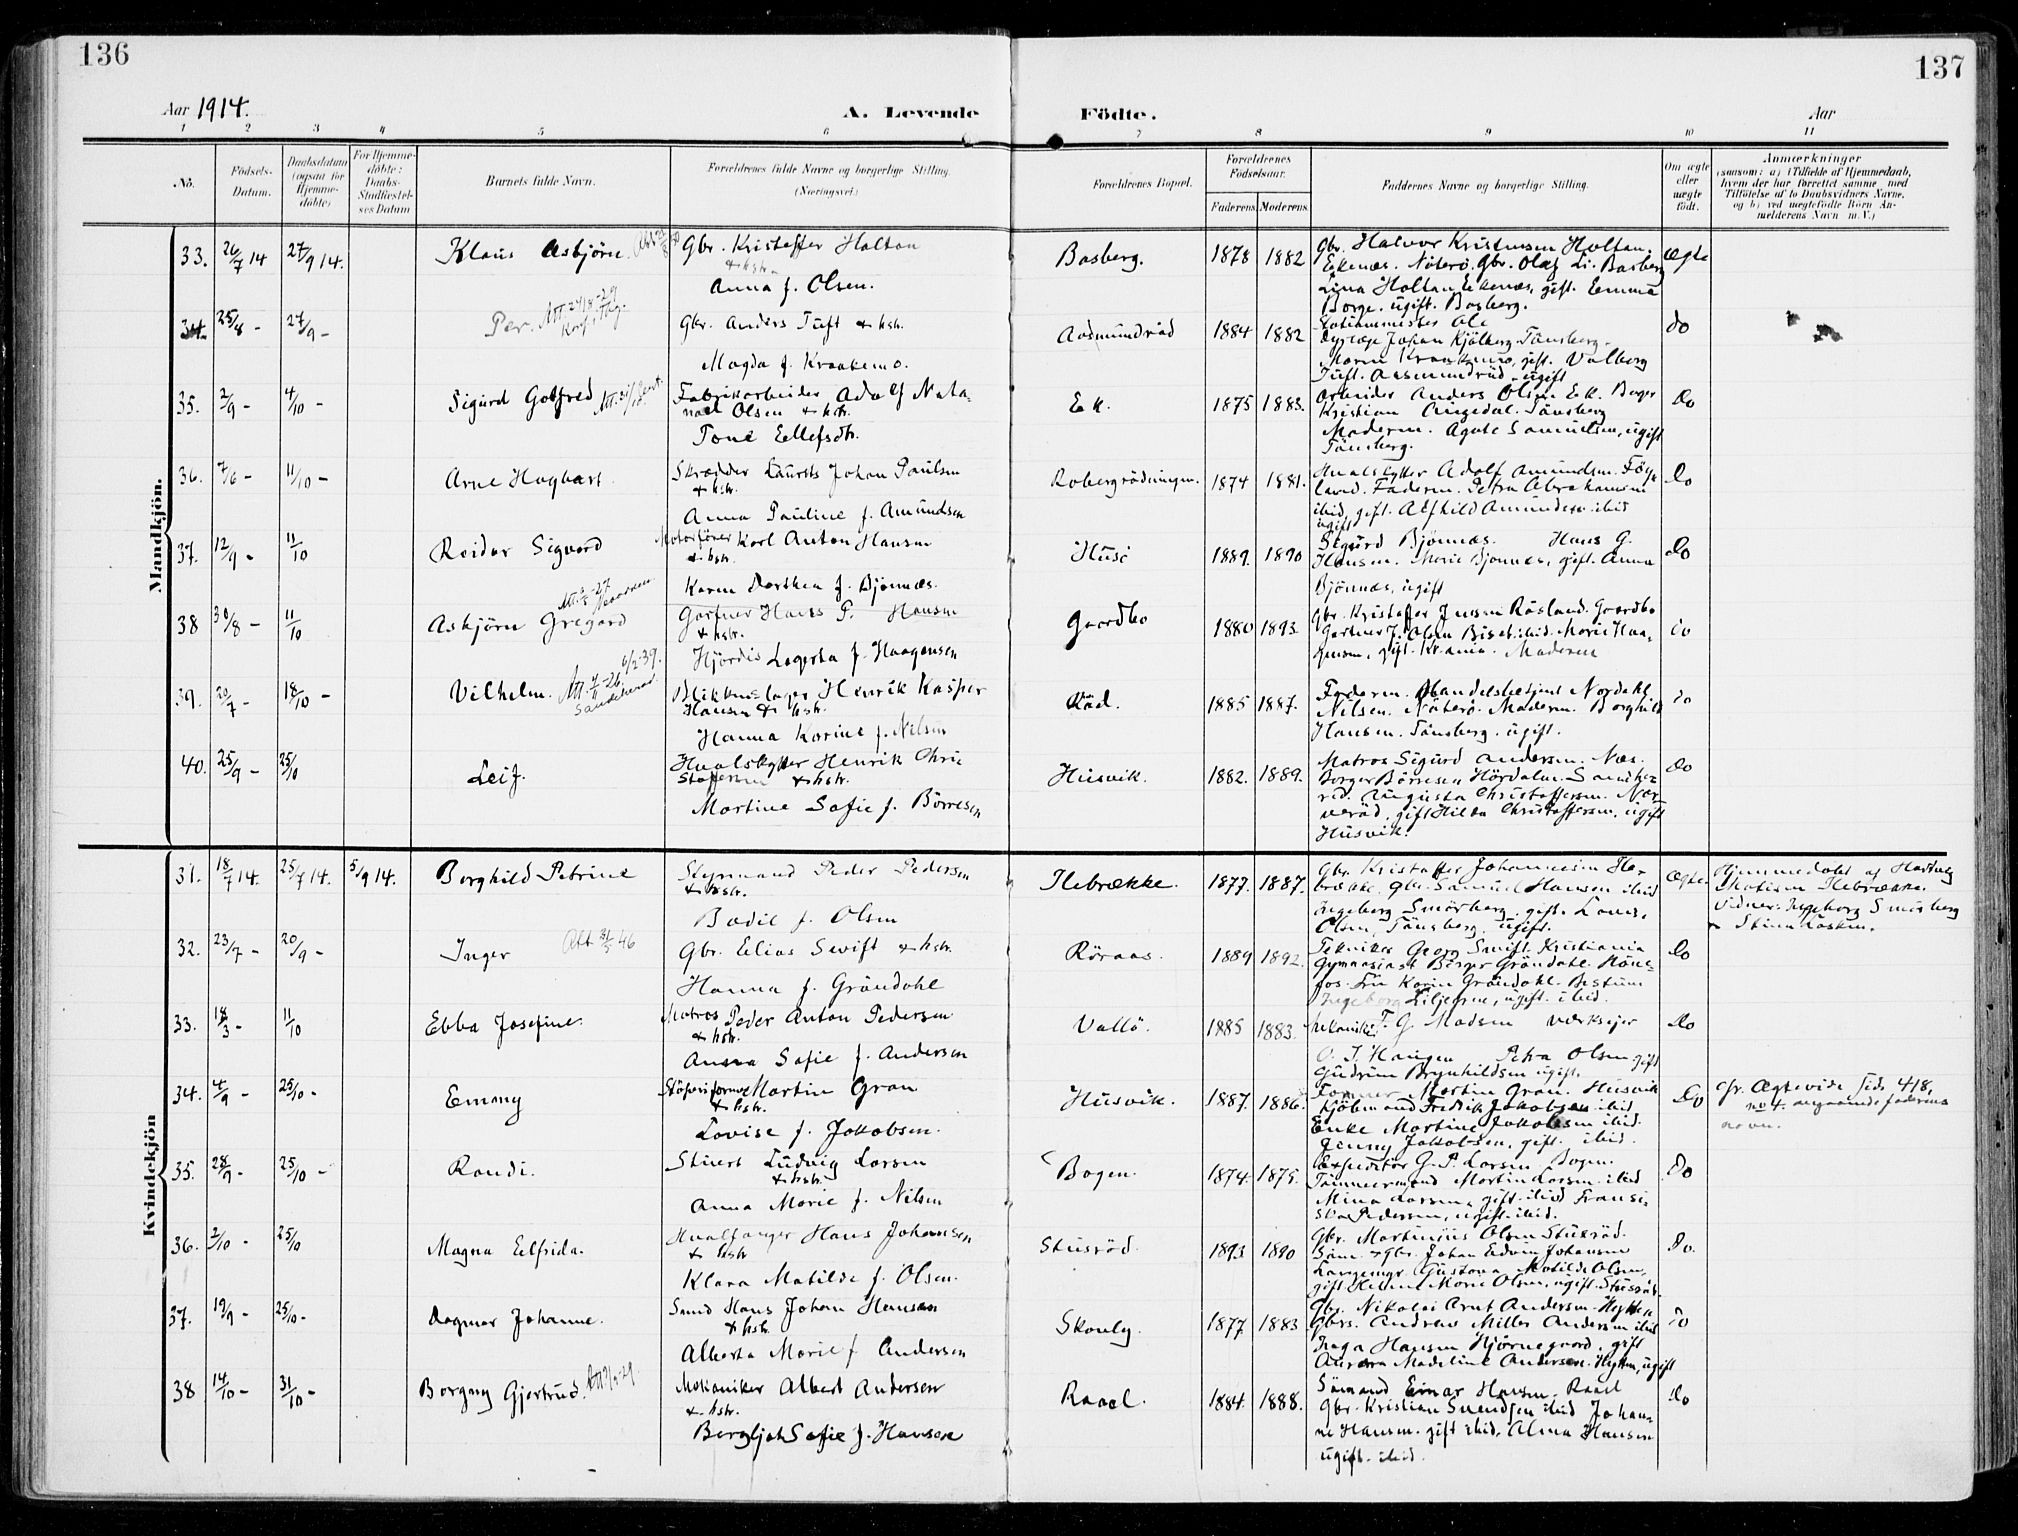 136
137
Aar 1914.
A. Levende Födte.
Aar
1 2 3 4 5 6 7 8 9 10 11
No.
Födsels-Datum.
Daabsdatum (ogsaa for Hjemme-döbte)
For Hjemme-döbte: Daabs-Stadfæstel-ses Datum
Barnets fulde Navn.
Forældrenes fulde Navne og borgerlige Stilling. (Næringsvei)
Forældrenes Bopæl.
Forældrenes Födselsaar.
Faderens. Moderens.
Faddernes Navne og borgerlige Stilling.
Om ægte eller uægte födt.
Anmærkninger
(saasom: a) i Tilfælde af Hjemmedaab, hvem der har forrettet samme med Tilföielse af to Daabsvidners Navne, og b) ved uægtefödte Börn An-melderens Navn m. V.)
Mandkjön.
33. 26/7 14 27/9 14. Klaus Asbjörn. Gbr. Kristoffer Holtan
& hstr.
Anna f. Olsen.
Basberg. 1878 1882
Gbr. Halvor Kristensen Holtan.
Ekenæs. Nöterö. Gbr. Olaf Li. Basberg
Lina Holtan Ekenæs, gift. Emma
Borge. ugift. Basberg.
ægte
34. 25/8 - 27/9 - Per. Gbr. Anders Tuft & hstr.
Magda f. Kraakemo.
Aasmundröd 1884 1882
Stationsmester Ole
Johan Kjölberg Tönsberg.
Maren Kraakemo, gift. Valborg
Tuft. Aasmundröd. ugift
do
35. 2/9 - 4/10 - Sigurd Gotfred Fabrikarbeider Adolf Nata-
nael Olsen & hstr.
Tone Ellefsdtr.
Ek. 1875 1883.
Arbeider Anders Olsen Ek. Borger
Kristian Tönsberg
Moderen. Agate Samuelsen, ugift
Tönsberg.
do
36. 7/6 - 11/10 - Arne Hagbart Skrædder Laurits Johan Paulsen
& hstr.
Anna Pauline f. Amundsen
Robergrödningen. 1874 1881.
Hvalskytter Adolf Amundsen.
Faderen. Petra Abrahamsen
ibid, gift. Alfhild Amundsen ibid
ugift
do
37. 12/9 - 11/10 Reidar Sigvard Motorförer Karl Anton Hansen
& hstr.
Karen Dorthea f. Bjönnæs.
Husö 1889. 1890
Sigurd Bjönnæs. Hans G.
Hansen. Marie Bjönnæs, gift. Anna
Bjönnæs, ugift
do
38 30/8 - 11/10 Asbjörn Gregard Gartner Hans P. Hansen
& hstr.
Hjördis Lagerta f. Haagensen
Gaardbo 1880 1893
Gbr. Kristoffer Jensen Röisland. Gaardbo
Gartner J. Olsen ibid. Marie Haa-
gensen, gift. Kr.ania. Moderen
do
39. 20/7 - 18/10 - Vilhelm. Blikkenslager Henrik Kasper
Hansen & hstr.
Hanna Karine f. Nilsen
Röd. 1885 1887.
Faderen. Handelsbetjent Nordahl
Nilsen. Nöterö. Moderen. Borghild
Hansen. Tönsberg. ugift.
do
40. 25/9 - 25/10 Leif. Hvalskytter Henrik Chris
stoffersen & hstr.
Martine Sofie f. Börresen
Husvik. 1882. 1889.
Matros Sigurd Andersen. Næs.
Borger Börresen Hördalen.
Augusta Christoffersen.
gift Hilda Christoffersen, ugift
Husvik.
do
Kvindekjön
31. 18/7 14. 25/7 14. 5/9 14. Borghild Petrine Styrmand Peder Pedersen
& hstr.
Bodil f. Olsen
Ilebrække. 1877. 1887.
Gbr. Kristoffer Johannesen Ile-
brække. Gbr. Samuel Hansen ibid
Ingeborg Smörberg. gift. Lovise
Olsen, Tönsberg, ugift.
Ægte.
Hjemmedöbt af Hartvig
Ilebrække.
Vidner: Ingeborg Smörberg
32. 23/7 - 20/9 - Inger Gbr. Elias Swift & hstr.
Hanna f. Gröndahl
Röraas. 1889 1892.
Tekniker Georg Swift. Kristiania
Gymnasiast Birger Gröndahl. Höne-
fos. Fru Karin Gröndahl. Bestum
Ingeborg Liljegren, ugift. ibid.
do
33. 18/3 - 11/10 Ebba Josefine. Matros Peder Anton Pedersen
& hstr.
Anna Sofie f. Andersen
Vallö. 1885 1883.
Mekaniker T. G. Madsen Værkseier
O. T. Haugen Petra Olsen gift
Gudrun Brynhildsen ugift.
do
34. 4/9 - 25/10 - Emmy Störperiformer Martin Gran
& hstr.
Lovise f. Jakobsen.
Husvik. 1887. 1886.
Former Martin Gran. Husvik
Kjöbmand Fredrik Jakobsen ibid
Enke Martine Jakobsen ibid.
Jenny Jakobsen, gift. ibid.
Do
cfr. Ægtevide Side 418,
no 4. angaaende faderens
navn.
35. 28/9 - 25/10 - Randi. Stuert Ludvig Larsen
& hstr.
Anna Marie f. Nilsen
Bogen. 1874. 1875.
Expeditör G. P. Larsen Bogen.
Tömmermand Martin Larsen. ibid
Mina Larsen, gift. ibid Fransi-
ska Pedersen, ugift. ibid.
Do
36. 2/10 - 25/10 Magna Elfrida. Hvalfanger Hans Johansen
& hstr
Klara Matilde f. Olsen.
Stusröd. 1893 1890
Gbr. Martinius Olsen Stusröd.
Söm. & Gbr. Johan Edvin Johansen
Langemyr Gustava Matilde Olsen,
gift Marie Olsen, ugift. Stusröd.
Do.
37. 19/9 - 25/10 - Dagmar Johanne. Smed Hans Johan Hansen
& hstr.
Alberta Marie f Andersen
Skauly. 1877 1883
Gbr. Nikolai Arnt Andersen. Hytten
Gbrs. Andrew Miller Andersen ibid
Inga Hansen Hjörnegaard, gift
Aurora Madeline Andersen. Hytten, ugift
do
38 14/10 - 31/10 - Borgny Gjertrud. Mekaniker Albert Andersen
& hstr.
Bergljot Sofie f. Hansen
Raael. 1884. 1888.
Sömand Einar Hansen. Raael
Gbr. Kristian Svendsen ibid Johan-
ne Hansen. gift ibid, Alma Hansen
ugift. ibid.
do